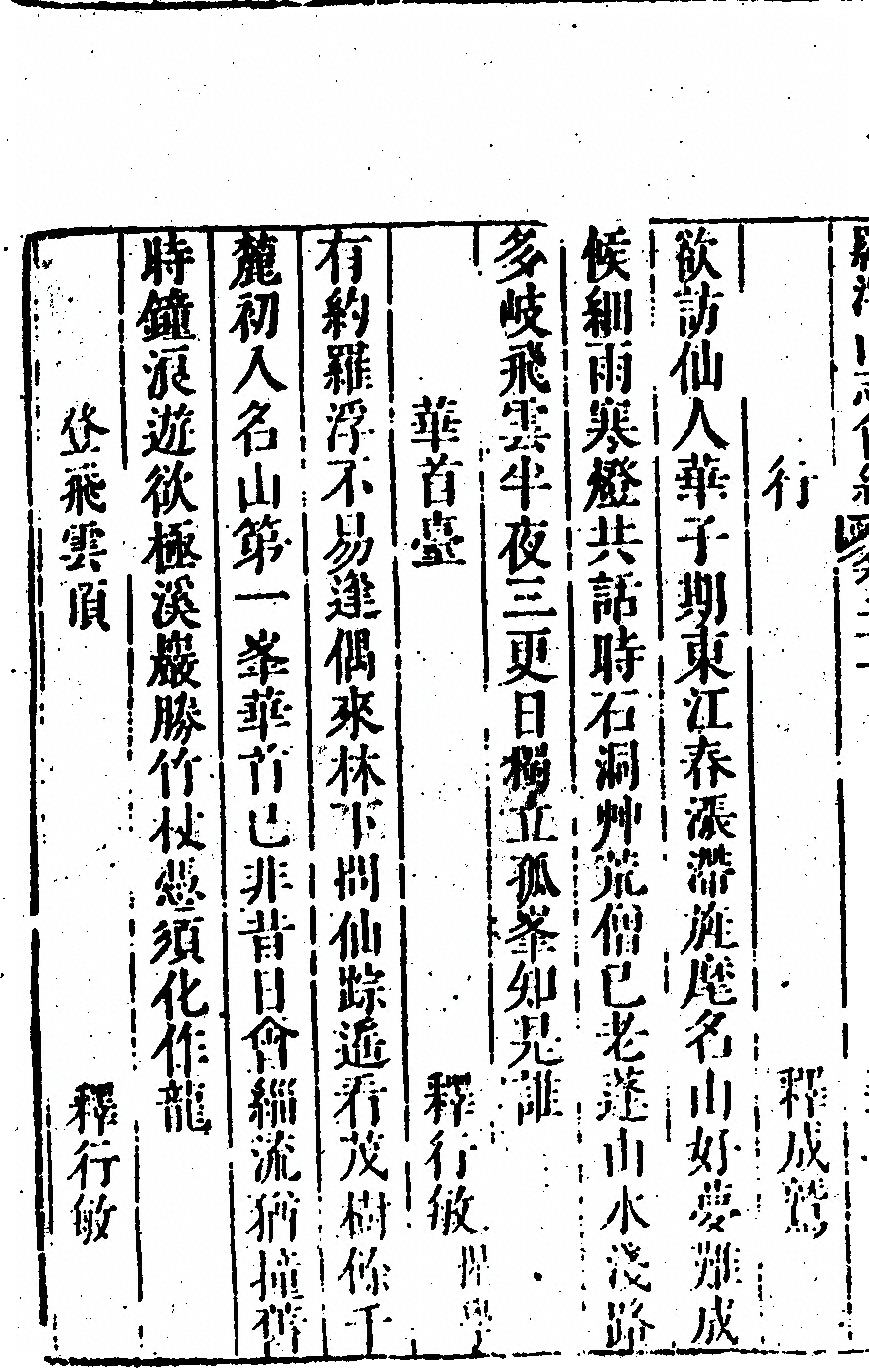 羅浮山志會編
行
釋成鷲
欲訪仙人華子期東江春漲滯旌麾名山好夢難成
候細雨寒燈共話時石洞艸荒僧已老蓬山水淺路
多岐飛雲半夜三更日獨立孤峯知是誰
華首臺
釋行敏
有約羅浮不易逢偶來林下問仙踪遥看茂樹條千
麓初入名山第一峯華首已非昔日會緇流猶撞舊
時鐘浪遊欲極溪巖勝竹杖憑須化作龍
登飛雲頂
釋行敏